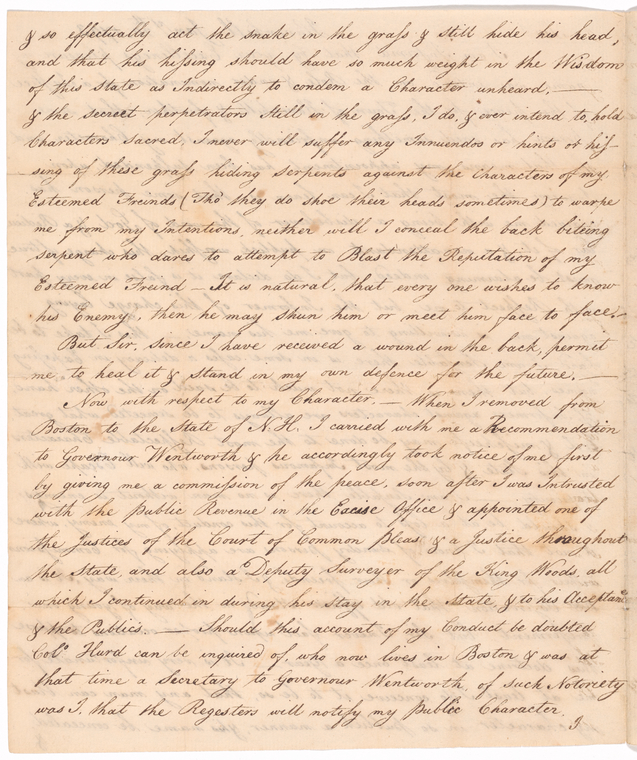 & so effectually act the snake in the grass & still hide his head,
and that his hissing should have so much weight in the Wisdom
of this state as Indirectly to condem a Character unheard. —
& the secreet perpetrators still in the grass, I do, & ever intend to, hold
Characters sacred, I never will suffer any Innuendos or hints or his-
sing of these grass hiding serpents against the Characters of my
Esteemed Freinds (Tho' they do shoe their heads sometimes) to warpe
me from my Intentions, neither will I conceal the back biteing
serpent who dares to attempt to Blast the Reputation of my
Esteemed Freind — It is natural, that every one wishes to know
his Enemy, then he may shun him or meet him face to face. —
But Sir, since I have received a wound in the back, permit
me, to heal it & stand in my own defence for the future. —
Now with respect to my Character. — When I removed from
Boston to the State of N.H. I carried with me a Recommendation
to Governour Wentworth & he accordingly took notice of me first
by giving me a commission of the peace, soon after I was Intrusted
with the Public Revenue in the Excise Office & appointed one of
the Justices of the Court of Common pleas & a Justice throughout
the State, and also a Deputy Surveyer of the King Woods, all
which I continued in during his Stay in the State, & to his Acceptanc
& the Publics. — Should this account of my Conduct be doubted
Colo. Hurd can be inquired of, who now lives in Boston & was at
that time a Secretary to Governour Wentworth, of such Notoriety
was I, that the Regesters will notify my Public Character.
I